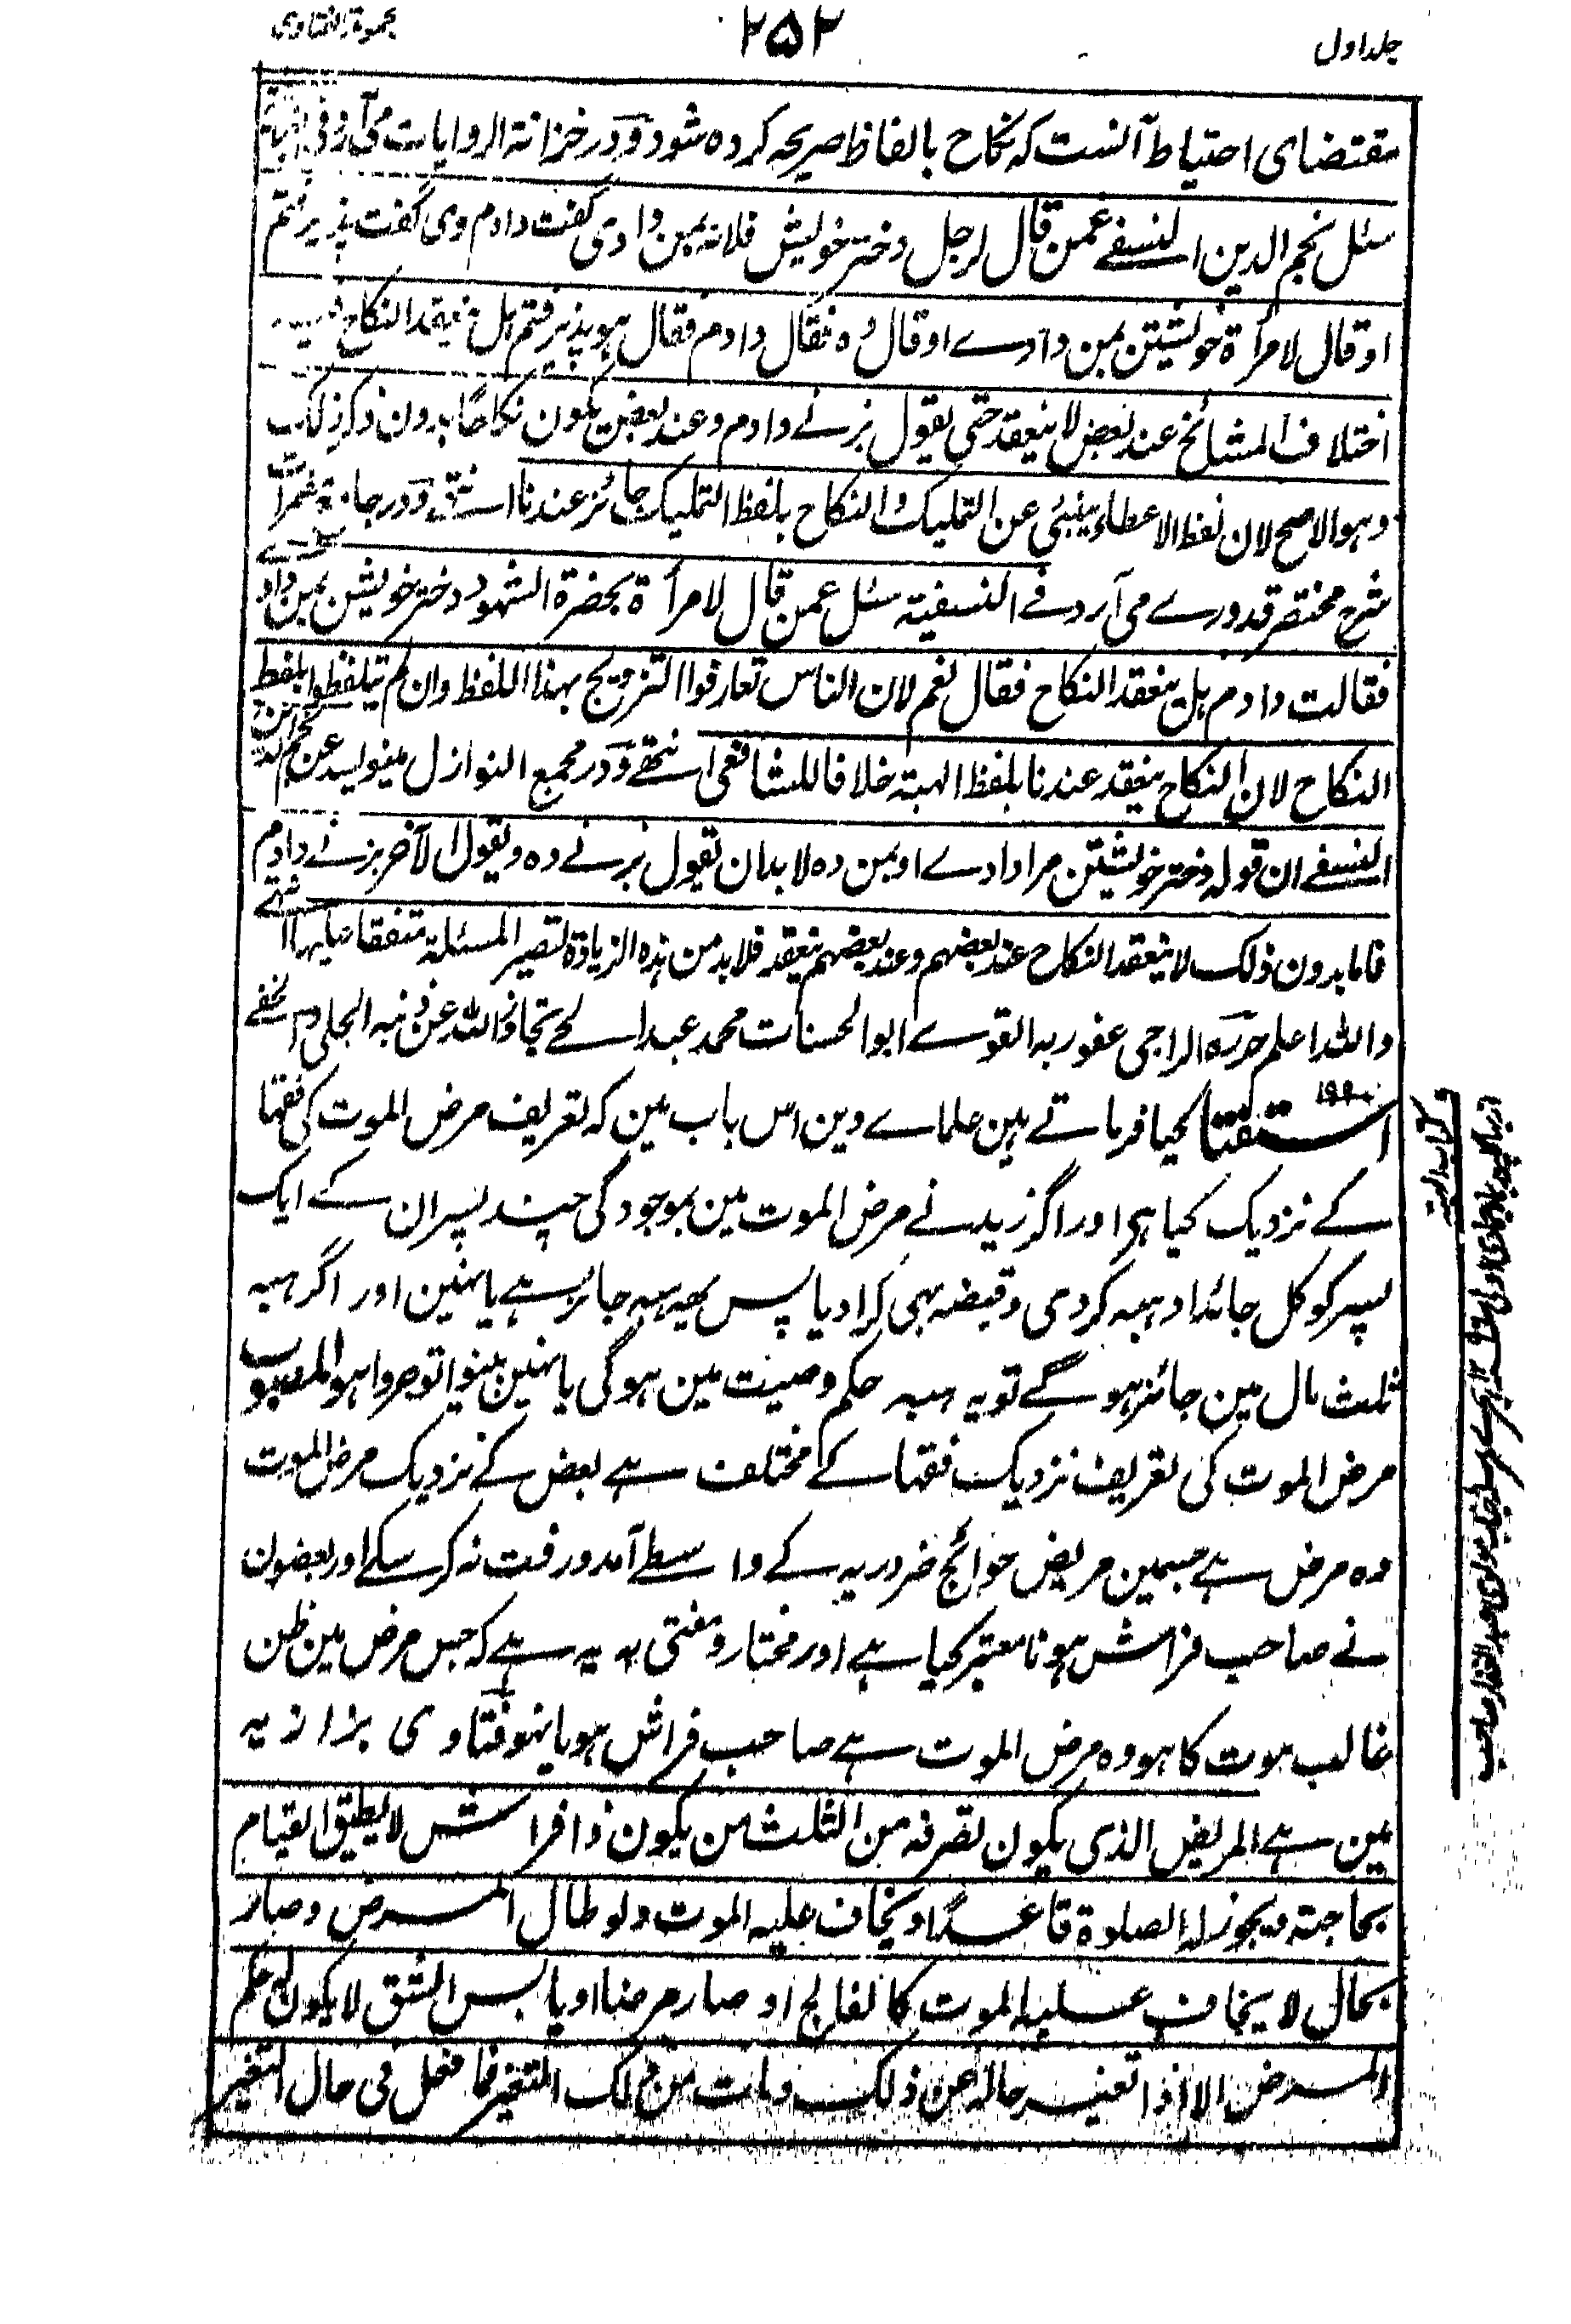 جلد اول
۲۵۲
مجموعۃ الفتاوی
مقتضای احتیاط آنست کہ نکاح بالفاظ صریحہ کردہ شود و در خزانۃ الروایات می آرد وفی
سئل نجم الدین النسفے عمن قال لرجل دختر خویش فلانہ بمن دادی گفت دادم وی گفت پذیرفتم
او قال لامرأۃ خویشتن بمن دادے او قال دہ فقال دادم فقال ہو پذیرفتم ہل ینعقد النکاح فیہ
اختلاف المشائخ عند بعض لا ینعقد حتی یقول بزنے دادم وعند بعض یکون نکاحًا بدون ذکر ذلک
وہو الاصح لان لفظ الاعطاء ینبئی عن التملیک والنکاح بلفظ التملیک جائز عندنا انتہی و در جامع مضمرات
شرح مختصر قدورے می آرد فے النسفیۃ سئل عمن قال لامرأۃ بحضرۃ الشہود دختر خویش بمن دادے
فقالت دادم ہل ینعقد النکاح فقال نعم لان الناس تعارفوا التزویج بہذا اللفظ وان لم یتلفظوا بلفظ
النکاح لان النکاح ینعقد عندنا بلفظ الہبۃ خلافا للشافعی انتہے و در مجمع النوازل مینویسد عن نجم الدین
النسفے ان قولہ دختر خویشتن مرا دادے او بمن دہ لابد ان یقول بزنے دہ ویقول الآخر بزنے دادم
فاما بدون ذلک لا ینعقد النکاح عند بعضہم وعند بعضہم ینعقد فلابد من ہذہ الزیادۃ لتصیر المسئلۃ متفقا علیہا انتہے
واللہ اعلم حررہ الراجی عفو ربہ القوے ابو الحسنات محمد عبد الحے تجاوز اللہ عن ذنبہ الجلی والخفے
استفتا کیا فرماتے ہین علماے دین اس باب مین کہ تعریف مرض الموت کی فقہا
کے نزدیک کیا ہی اور اگر زید نے مرض الموت مین بموجودگی چند پسران کے ایک
پسر کو کل جائداد ہبہ کردی و قبضہ بھی کرادیا پس یہ ہبہ جائز ہے یا نہین اور اگر ہبہ
ثلث مال مین جائز ہوگے تو یہ ہبہ حکم وصیت مین ہوگی یا نہین بینوا توجروا ہو المصوب
مرض الموت کی تعریف نزدیک فقہا کے مختلف ہے بعض کے نزدیک مرض الموت
وہ مرض ہے جسمین مریض حوائج ضروریہ کے واسطے آمد و رفت نہ کرسکے اور بعضون
نے صاحب فراش ہونا معتبر کیا ہے اور مختار و مفتی بہ یہ ہے کہ جس مرض مین ظن
غالب موت کا ہو وہ مرض الموت ہے صاحب فراش ہو یا نہو فتاوی بزازیہ
مین ہے المریض الذی یکون تصرفہ من الثلث من یکون ذا فراش لا یطیق القیام
بحاجتہ ویجوز لہ الصلوۃ قاعدًا ویخاف علیہ الموت ولو طال المرض وصار
بحال لا یخاف علیہ الموت کالفالج او صار مزمنا او یابس الشق لا یکون لہ حکم
المرض الا اذا تغیر حالہ عن ذلک ومات من ذلک التغیر فما فعل فی حال التغیر